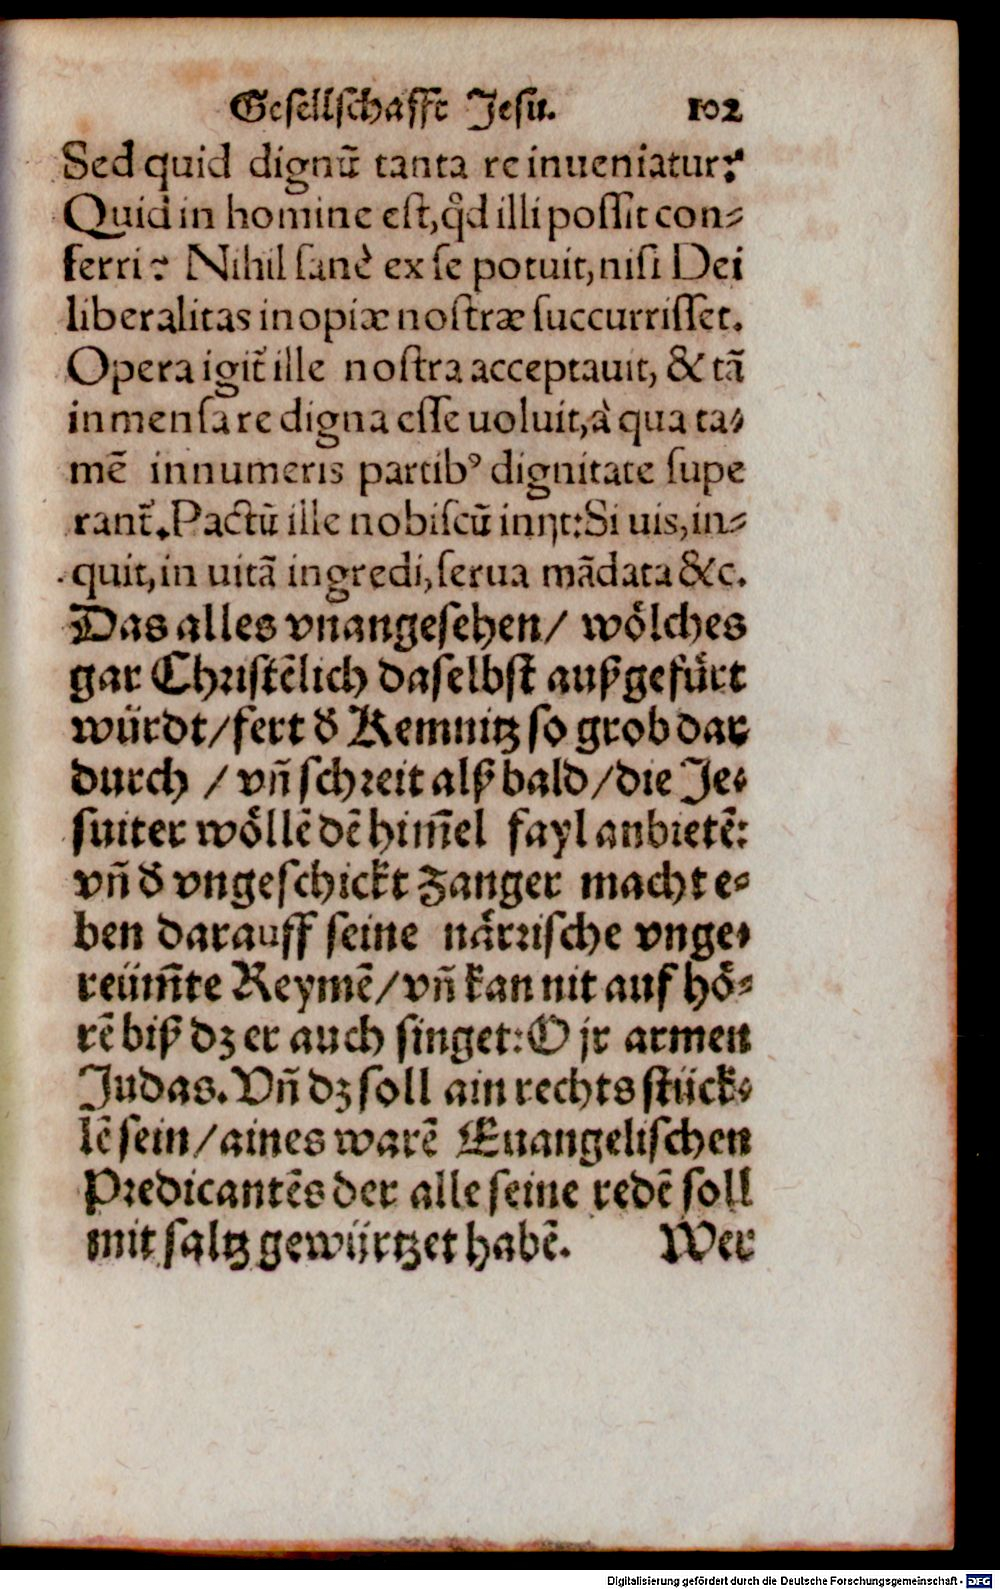 Gesellschafft Jesu. 102
Sed quid dignū tanta re inueniatur?
Quid in homine est, qd̕ illi possit con⸗
ferri? Nihil sanè ex se potuit, nisi Dei
liberalitas inopiæ nostræ succurrisset.
Opera igit᷑ ille nostra acceptauit, & tā
in mensa re digna esse uoluit, à qua ta⸗
mē innumeris partibꝰ dignitate supe
rant᷑. Pactū ille nobiscū inijt: Si uis, in⸗
quit, in uitā ingredi, serua mādata &c.
Das alles vnangesehen/ wölches
gar Christēlich daselbst außgefürt
würdt/ fert d̕ Kemnitz so grob dar
durch / vñ schreit alß bald/ die Je⸗
suiter wöllē dē him̄el fayl anbietē:
vñ d̕ vngeschickt Zanger macht e⸗
ben darauff seine närrische vnge⸗
reüm̄te Reymē/ vñ kan nit auf hö⸗
rē biß dz er auch singet: O jr armen
Judas. Vñ dz soll ain rechts stück⸗
lē sein/ aines warē Euangelischen
Predicantēs der alle seine redē soll
mit saltz gewürtzet habē. Wer
Digitalisierung gefördert durch die Deutsche Forschungsgemeinschaft - DFG